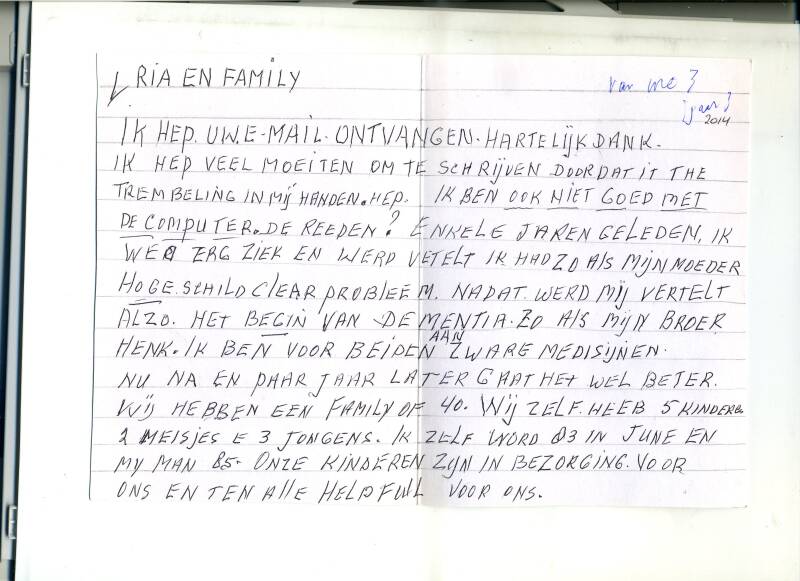 RIA EN FAMILY
van me
jaar
2014
IK HEP. UW.E-MAIL. ONTVANGEN. HARTELIJK DANK.
IK HEP VEEL MOEITEN OM TE SCHRIJVEN DOORDAT IT THE
TREMBELING IN MIJ HANDEN. HEP. IK BEN OOK NIET GOED MET
DE COMPUTER. DE REEDEN? ENKELE JAREN GELEDEN, IK
WERD ZERG ZIEK EN WERD VETELT IK HAD ZO ALS MIJN MOEDER
HOGE. SCHILD CLEAR PROBLEEM. NADAT. WERD MIJ VERTELT
ALZO. HET BEGIN VAN DEMENTIA. ZO ALS MIJN BROER
HENK. IK BEN VOOR BEIDEN AAN ZWARE MEDISIJNEN.
NU NA EN PAAR JAAR LATER GAAT HET WEL BETER.
WIJ HEBBEN EEN FAMILY OF 40. WIJ ZELF. HEEB 5 KINDEREN
2 MEISJES E 3 JONGENS. IK ZELF WORD 83 IN JUNE EN
MY MAN 85. ONZE KINDEREN ZYN IN BEZORGING. VOOR
ONS EN TEN ALLE HELPFULL VOOR ONS.